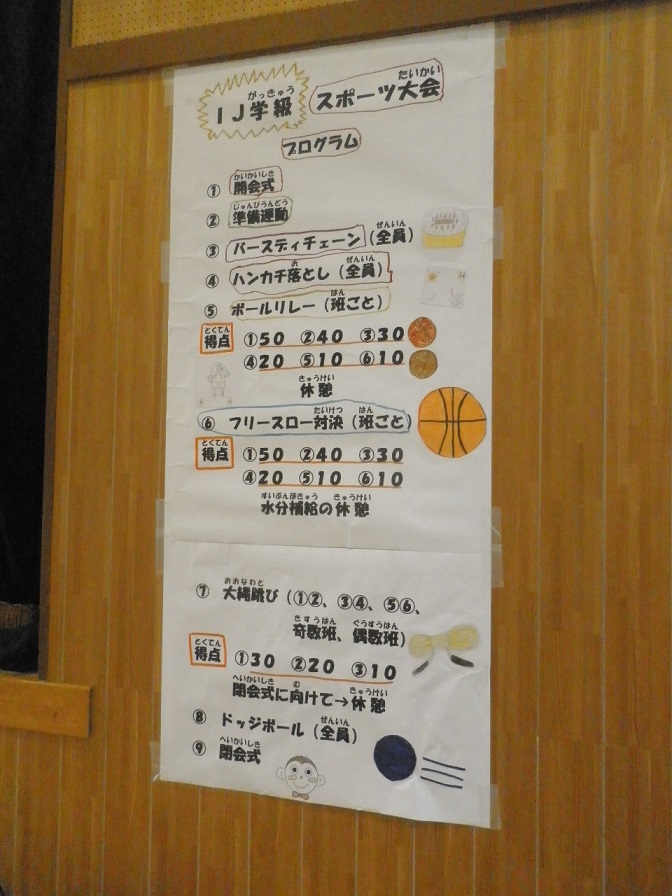 がっきゅう たいかい
IJ学級 スポーツ大会
プログラム
かいかいしき
① 開会式
じゅんびうんどう
② 準備運動
ぜんいん
③ バースディチェーン(全員)
お ぜんいん
④ ハンカチ落とし(全員)
はん
⑤ ボールリレー(班ごと)
とくてん
得点 ①50 ②40 ③30
④20 ⑤10 ⑥10
きゅうけい
休憩
たいけつ はん
⑥ フリースロー対決(班ごと)
とくてん
得点 ①50 ②40 ③30
④20 ⑤10 ⑥10
すいぶんほきゅう きゅうけい
水分補給の休憩
おおなわと
⑦ 大縄跳び(①②、③④、⑤⑥、
きすうはん ぐうすうはん
奇数班、偶数班)
とくてん
得点 ①30 ②20 ③10
へいかいしき む きゅうけい
閉会式に向けて→休憩
ぜんいん
⑧ ドッジボール(全員)
へいかいしき
⑨ 閉会式